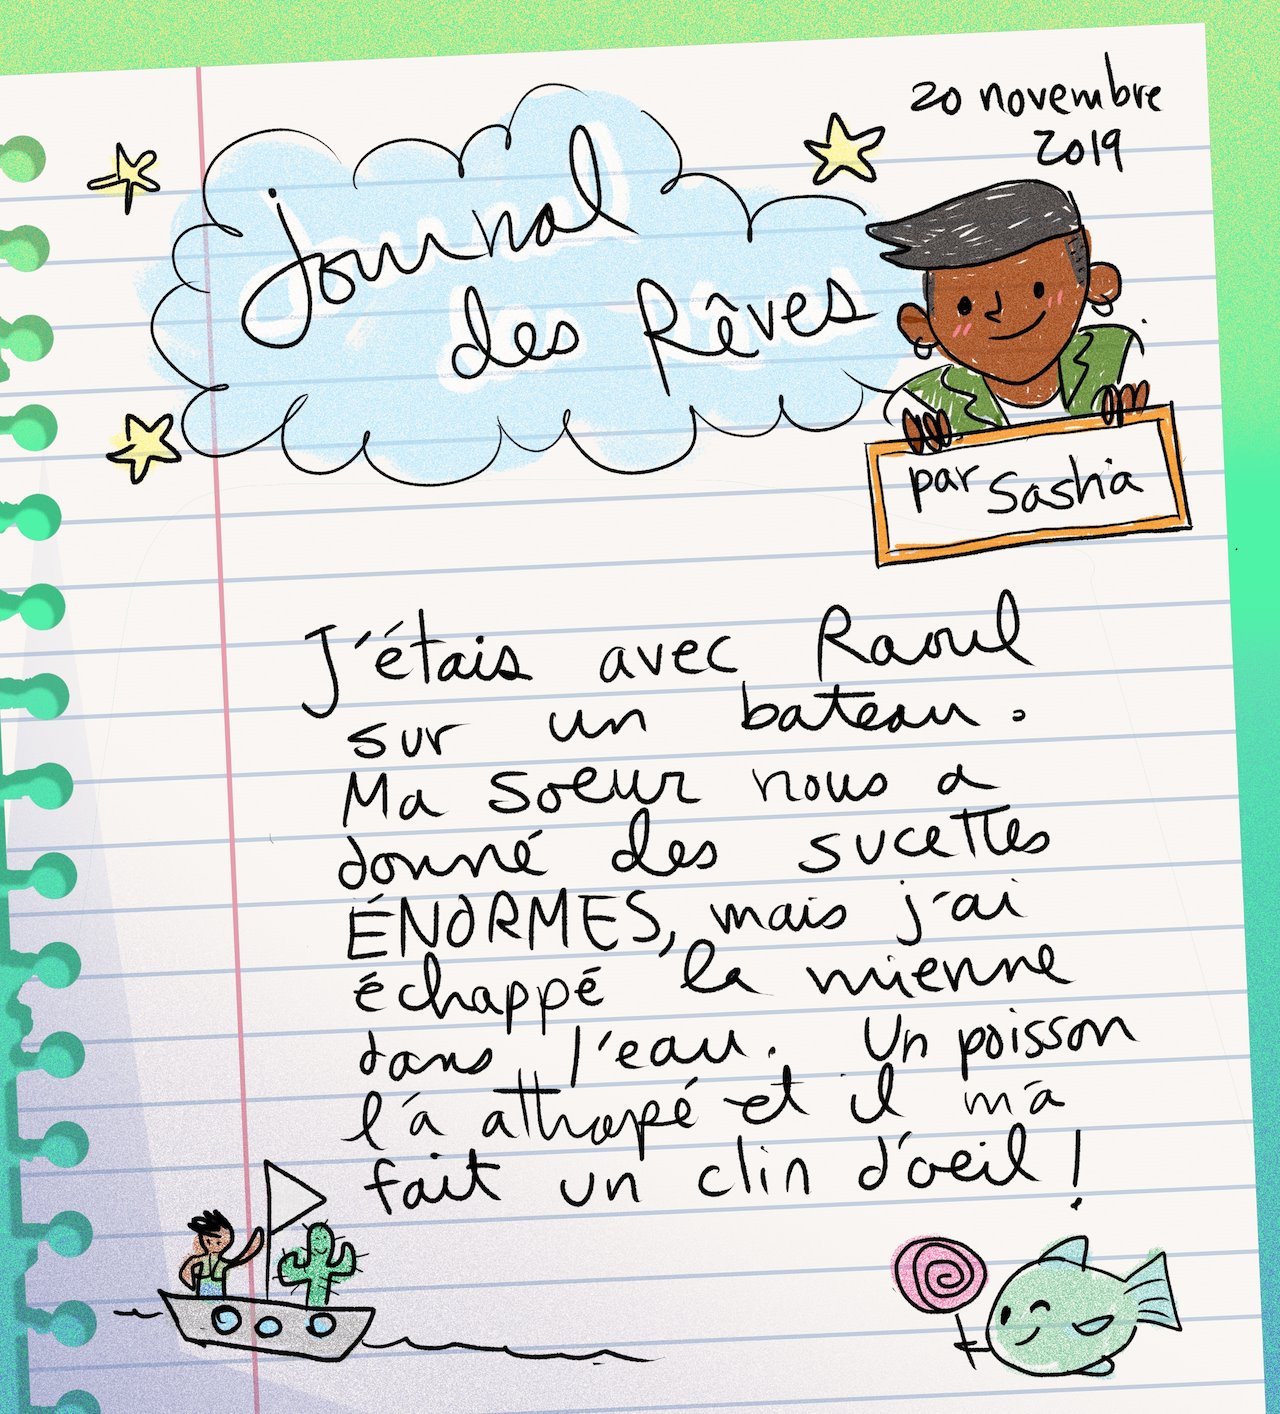 20 novembre
2019
Journal
des Rêves
par Sasha
J'étais avec Raoul
sur un bateau.
Ma soeur nous a
donné des sucettes
ÉNORMES, mais j'ai
échappé la mienne
dans l'eau. Un poisson
l'a attrapé et il m'a
fait un clin d'oeil!